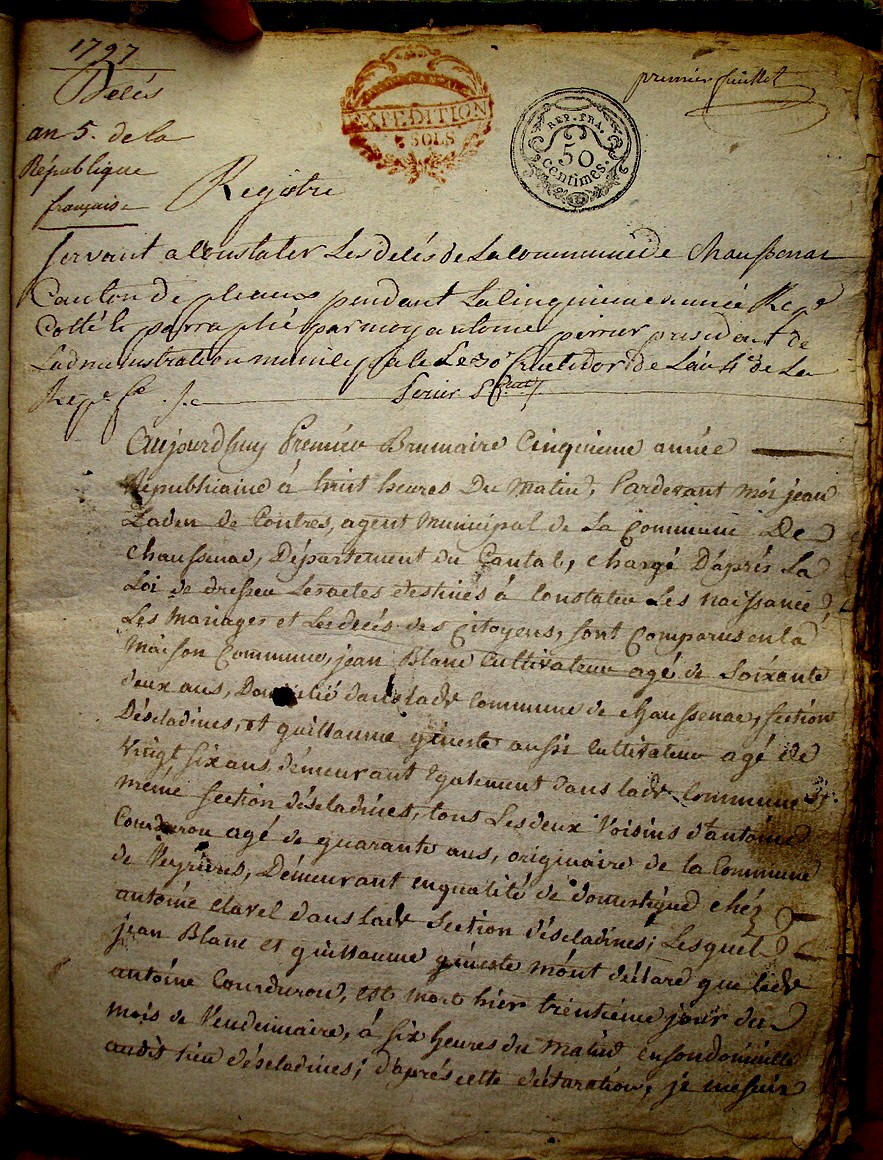 1797
Delés
an 5. de la
République
française
EXPEDITION
SOLS
REP. FRA.
50
centimes.
premier feuillet
Registre
servant a Constater Les delés de La commune de Chaussenac
Canton de pleaux pendant La Cinquieme année Rep.e
Cotté & parraphé par moy antoine perrier president de
Ladministration municipale Le 30e fructidor de L'an 4e de La
Aujourdhuy Premier Brumaire Cinquieme année
Republicaine à huit heures Du Matin, Pardevant moi jean
de Contres, agent Municipal de La Commune De
Chaussenac, Département du Cantal, chargé Daprés La
Loi de dresser Les actes destinés à Constater Les naissances,
Les Mariages et Les decés des Citoyens, sont Comparus en la
Maison Commune, jean Blanc Cultivateur agé de Soixante
deux ans, Domicilié dans lade Commune de chaussenac, section
Déseladines, et guillaume gineste aussi Cultivateur agé de
Vingt six ans, demeurant également dans lade Commune &
méme section déseladines, tous Les deux Voisins d'antoine
Courdurou agé de quarante ans, originaire de la Commune
de Veyrieres, Démeurant en qualité de domestique chéz
antoine Clavel dans lade section déseladines; Lesquels
jean Blanc et guillaume gineste m'ont déclaré que ledt
antoine Courdurou, est mort hier trentiéme jour du
mois de Vendemiaire, à six heures du Matin en son domicille
audit lieu déseladines; d'aprés cette déclaration, je me suis